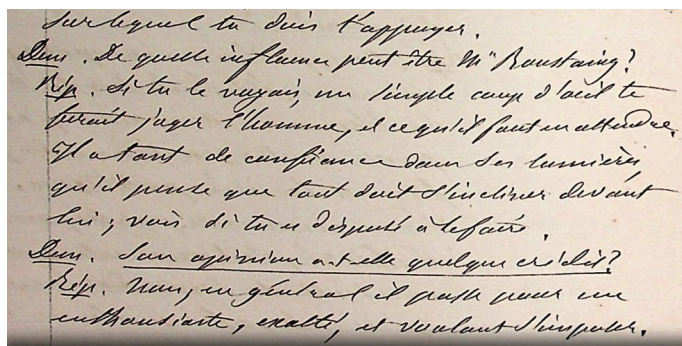 sur lequel tu dois t'appuyer.
Dem. De quelle influence peut être Mr Roustaing?
Rép. Si tu le voyais, un simple coup d'œil te
ferait juger l'homme, et ce qu'il faut en attendre.
Il a tant de confiance dans ses lumières
qu'il pense que tout doit s'incliner devant
lui; vois si tu es disposé à le faire.
Dem. Son opinion a-t-elle quelque crédit?
Rép. Non, en général il passe pour un
enthousiaste, exalté, et voulant s'imposer.